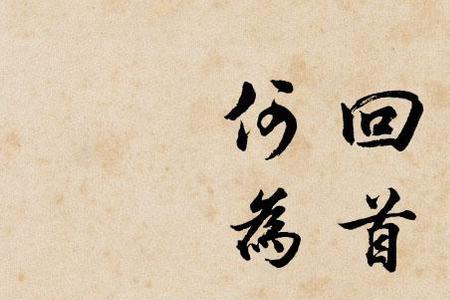 回首
何為